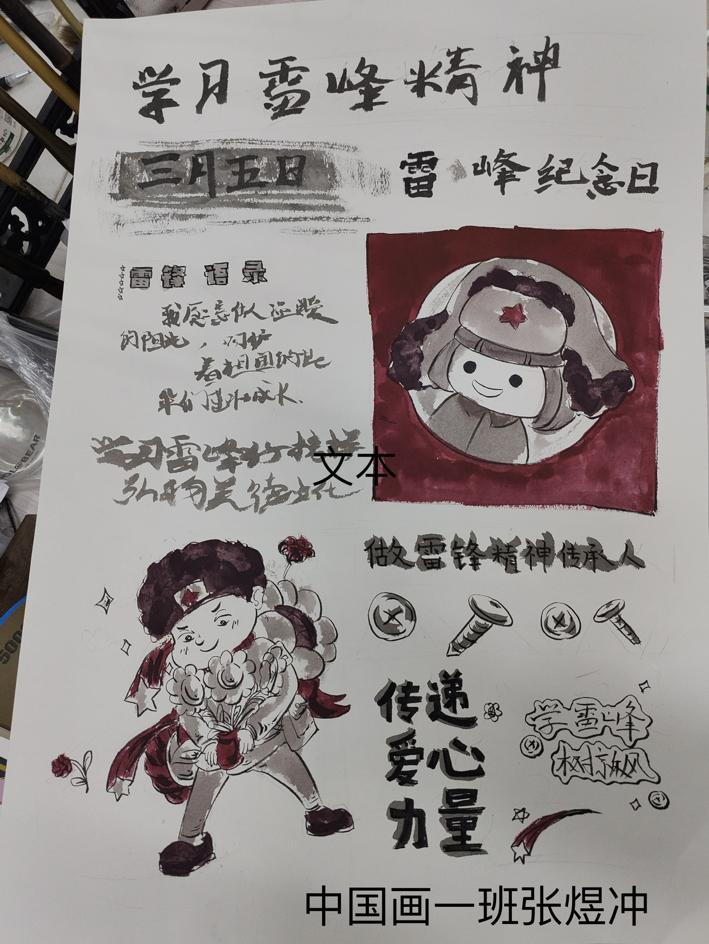 学习雷峰精神
三月五日
雷峰纪念日
雷锋语录
我愿意做人 
的阳光，呵护
着祖国的
我们 成长.
学习雷峰好榜样
弘扬美德文化
文本
做雷锋精神传承人
传递
爱心
力量
学雷峰
树新风
中国画一班张煜冲
BEAR
500